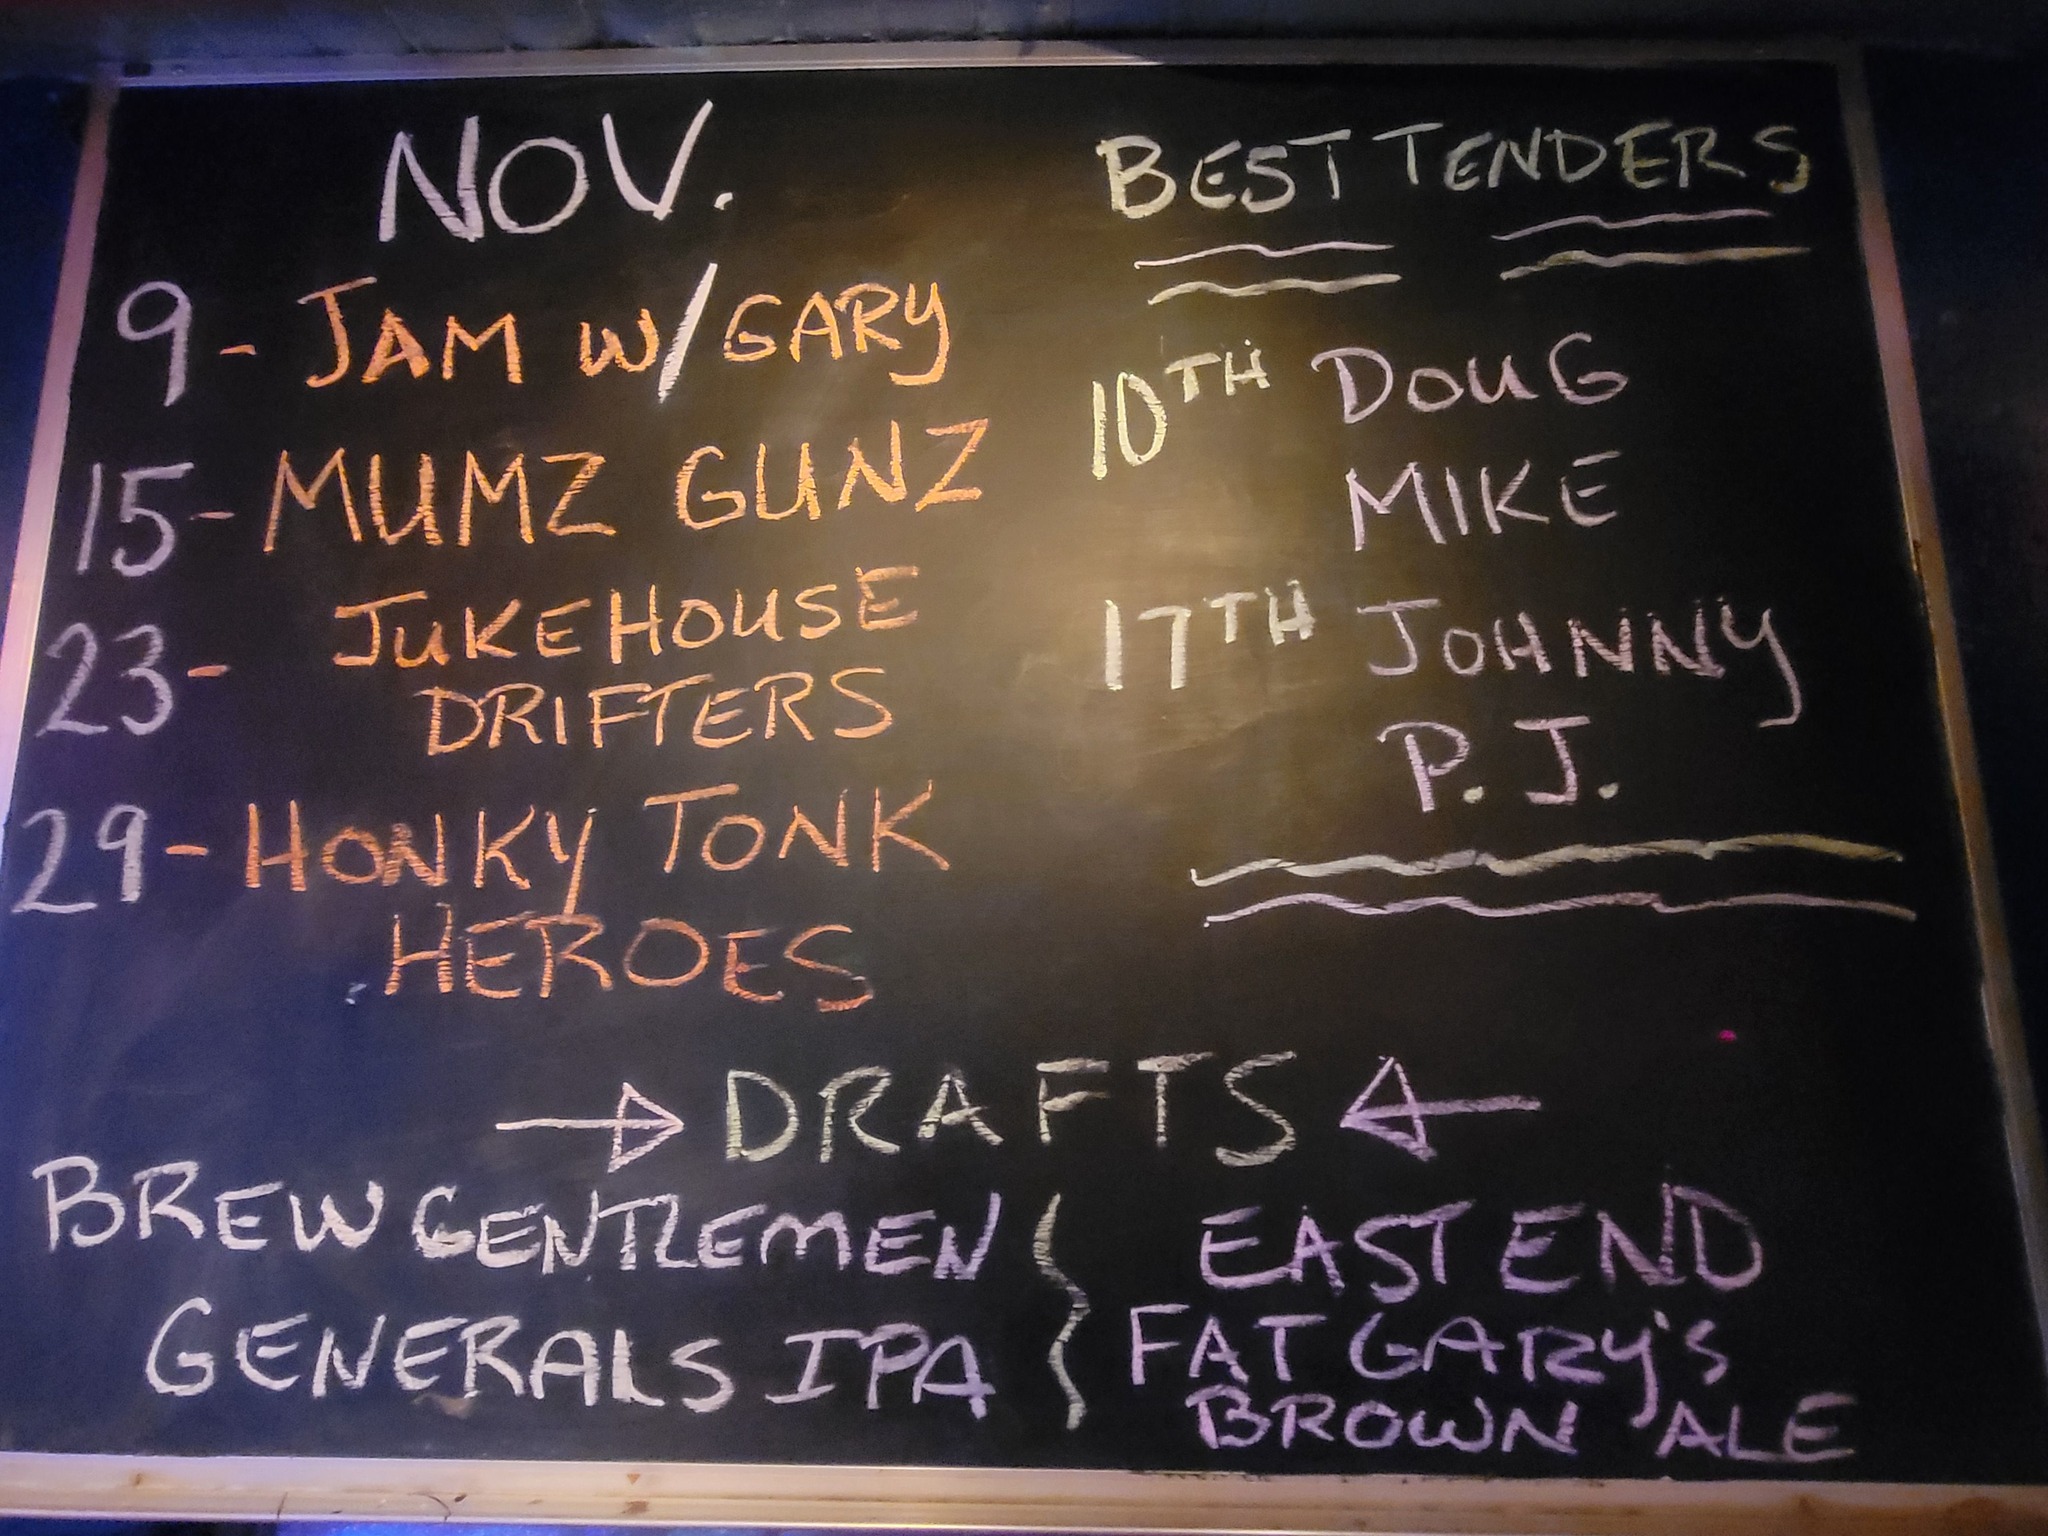 NOV.
9 - JAM W/GARY
15 - MUMZ GUNZ
23 - JUKEHOUSE
DRIFTERS
29 - HONKY TONK
HEROES
BEST TENDERS
10TH DOUG
MIKE
17TH JOHNNY
P.J.
DRAFTS
BREW GENTLEMEN
GENERALS IPA
EAST END
FAT GARY'S
BROWN ALE